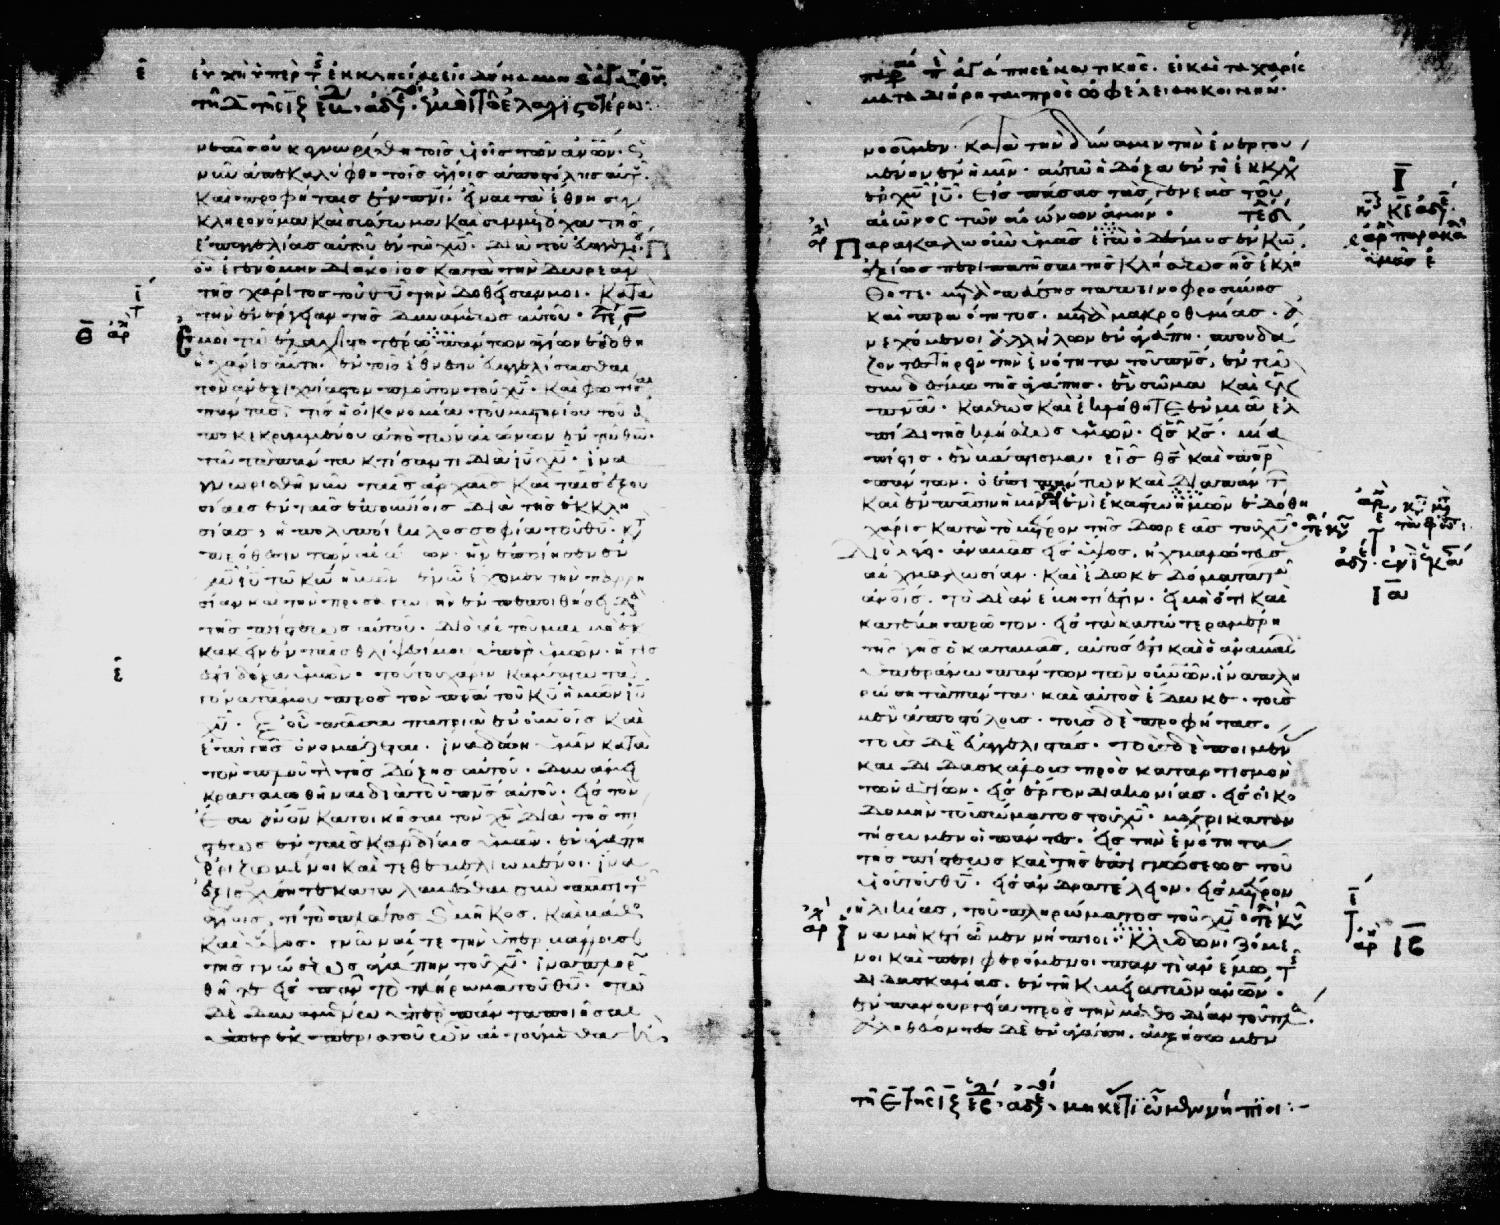 εὐχὴ ὑπὲρ τ ἐκκλησίας εἰς δύναμιν
τῆ Δ τῆς ιξ · ἀδε · ἐμοὶ τῶ ἐλαχιστοτέρω:
νεαῖς οὐκ ἐγνωρίσθη τοῖς υἱοῖς τῶν ἀν̅ων· ὡς
νῦν ἀπεκαλύφθη τοῖς ἁγίοις ἀποστόλοις αὐτ.
καὶ προφήταις ἐν πν̅ι· εἶναι τὰ ἔθνη συγ
κληρονόμα καὶ σύσσωμα καὶ συμμέτοχα τῆς
ἐπαγγελίας αὐτοῦ ἐν τῶ χ̅ω· διὰ τοῦ εὐαγγελίου
οὗ ἐγενόμην διάκονος κατὰ τὴν δωρεὰν
τῆς χάριτος τοῦ θ̅υ τὴν δοθεῖσαν μοι· κατὰ
τὴν ἐνέργειαν τῆς δυνάμεως αὐτοῦ·
Ἐμοὶ τῶ ἐλαχιστοτέρω πάντων ἁγίων ἐδόθη
ἡ χάρις αὕτη· ἐν τοῖς ἔθνεσιν εὐαγγελίσασθαι
τὸν ἀνεξιχνίαστον πλοῦτον τοῦ χ̅υ· καὶ φωτίσαι
πάντας, τίς ἡ οἰκονομία τοῦ μυστηρίου τοῦ ἀ
ποκεκρυμμένου ἀπὸ τῶν αἰώνων ἐν τῶ θ̅ω·
τῶ τὰ πάντα κτίσαντι διὰ ι̅υ χ̅υ· ἵνα
γνωρισθῆ νῦν ταῖς ἀρχαῖς καὶ ταῖς ἐξου
σίαις ἐν τοῖς ἐπουρανίοις διὰ τῆς ἐκκλη
σίας, ἡ πολυποίκιλος σοφία τοῦ θ̅υ· κατὰ
πρόθεσιν τῶν αἰώνων· ἣν ἐποίησεν ἐν
χ̅ω ι̅υ τῶ κ̅ω ἡμῶν· ἐν ὧ ἔχομεν τὴν παρρη
σίαν καὶ τὴν προσαγωγὴν ἐν πεποιθήσει διὰ
τῆς πίστεως αὐτοῦ· διὸ αἰτοῦμαι μὴ ἐκ
κακεῖν ἐν ταῖς θλίψεσί μου ὑπὲρ ὑμῶν· ἥτις
ἐστὶ δόξα ὑμῶν· τούτου χάριν κάμπτω τὰ
γόνατά μου πρὸς τὸν π̅ρα τοῦ κ̅υ ἡμῶν ι̅υ
χ̅υ· ἐξ οὗ πᾶσα πατριὰ ἐν οὐ̅νοῖς καὶ
ἐπὶ γῆς ὀνομάζεται· ἵνα δώη ὑμῖν κατὰ
τὸν πλοῦτον τῆς δόξης αὐτοῦ· δυνάμει
κραταιωθῆναι διὰ τοῦ πν̅ς αὐτοῦ· εἰς τὸν
ἔσω ἄν̅ον κατοικῆσαι τὸν χ̅ν διὰ τῆς πί
στεως ἐν ταῖς καρδίαις ὑμῶν· ἐν ἀγάπη
ἐρριζωμένοι καὶ τεθεμελιωμένοι· ἵνα
ἐξισχύσητε καταλαβέσθαι σὺν πᾶσι τοῖς
ἁγίοις, τί τὸ πλάτος κ μῆκος· καὶ βάθος
καὶ ὕψος· γνῶναί τε τὴν ὑπερβάλλουσαν
τῆς γνώσεως ἀγάπην τοῦ χ̅υ· ἵνα πληρω
θῆτε εἰς πᾶν τὸ πλήρωμα τοῦ θ̅υ· τῶ
δὲ δυναμένω ὑπὲρ πάντα ποιῆσαι
ὑπὲρ ἐκ περισσοῦ ὧν αἰτούμεθα ἢ
ἀγάπης ἑνωτικῆς· εἰ καὶ τὰ χαρίς
ματα διήρηται πρὸς ὠφέλειαν κοινήν·
νοοῦμεν· κατὰ τὴν δύναμιν τὴν ἐνεργου
μένην ἐν ἡμῖν· αὐτῶ ἡ δόξα ἐν τῆ ἐκκλη
ἐν χ̅ω ι̅υ· εἰς πάσας τὰς γενεὰς τοῦ
αἰῶνος τῶν αἰώνων ἀμήν· τέλ
Παρακαλῶ οὖν ὑμᾶς ἐγὼ ὁ δέσμιος ἐν κ̅ω
ἀξίως περιπατῆσαι τῆς κλήσεως ἧς ἐκλή
θητε· μετὰ πάσης ταπεινοφροσύνης
καὶ πραότητος· μετὰ μακροθυμίας· ἀ
νεχόμενοι ἀλλήλων ἐν ἀγάπη· σπουδά
ζοντες τηρεῖν τὴν ἑνότητα τοῦ πν̅ς, ἐν τῶ
συνδέσμω τῆς εἰρήνης· ἓν σῶμα καὶ ἓν
πν̅α· καθὼς καὶ ἐκλήθητε ἐν μιᾶ ἐλ
πίδι τῆς κλήσεως ὑμῶν· εἷς κ̅ς· μία
πίστις· ἓν βάπτισμα· εἷς θ̅ς καὶ π̅ηρ
πάντων· ὁ ἐπὶ πάντων καὶ διὰ πάντ
καὶ ἐν πᾶσιν ἡμῖν· ἑνὶ ἑκάστω ἡμῶν ἐδόθη
χάρις κατὰ τὸ μέτρον τῆς δωρεᾶς τοῦ χ̅υ·
Διὸ λέγει· ἀναβὰς εἰς ὕψος, ἠχμαλώτευσ
αἰχμαλωσίαν· καὶ ἔδωκε δόματα τοῖς
ἀν̅οις· τὸ δὲ ἀνέβη τί ἐστιν· εἰ μὴ ὅτι καὶ
κατέβη πρῶτον· εἰς τὰ κατώτερα μέρη
τῆς γῆς ὁ καταβάς, αὐτός ἐστι καὶ ὁ ἀναβὰς
ὑπεράνω πάντων τῶν οὐ̅νῶν· ἵνα πλη
ρώση τὰ πάντα· καὶ αὐτὸς ἔδωκε· τοὺς
μὲν ἀποστόλους· τοὺς δὲ προφήτας·
τοὺς δὲ εὐαγγελιστάς· τοὺς δὲ ποιμέν
καὶ διδασκάλους πρὸς καταρτισμὸν
τῶν ἁγίων· εἰς ἔργον διακονίας· εἰς οἰκο
δομὴν τοῦ σώματος τοῦ χ̅υ· μέχρι καταν
τήσωμεν οἱ πάντες· εἰς τὴν ἑνότητα
τῆς πίστεως καὶ τῆς ἐπιγνώσεως τοῦ
υἱοῦ τοῦ θ̅υ· εἰς ἄνδρα τέλειον· εἰς μέτρον
ἡλικίας, τοῦ πληρώματος τοῦ χ̅υ
ἵνα μηκέτι ὦμεν νήπιοι· κλυδωνιζόμε
νοι καὶ περιφερόμενοι παντὶ ἀνέμω τ
διδασκαλίας· ἐν τῆ κυβεία τῶν ἀν̅ων·
ἐν πανουργία πρὸς τὴν μεθοδείαν τοῦ πλ
ἀληθεύοντες δὲ ἐν ἀγάπη· αὐξήσωμεν
τῆ Ε τῆς ιξ · ἀδε · μηκέτι ὦμεν νήπιοι:-